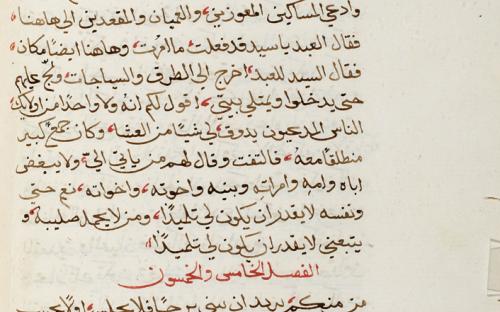 وادعي المساكين المعوزين، والعميان والمقعدين الي هاهنا،
فقال العبد ياسيد قد فعلت، ما امرت، وهاهنا ايضا مكان،
فقال السيد للعبد، اخرج الي الطرق والسياجات، ولح عليهم
حتي يدخلوا ويمتلي بيتي، اقول لكم انه ولا واحدا من اولايك،
الناس المدعيون يدوق لي شيئا من العشا، وكان جمع كبير
منطلقا معه، فالتفت وقال لهم من ياتي الي، ولا يبغض
اباه وامه وامراته وبنيه واخوته، واخواته، نعم حتي
ونفسه لا يقدر ان يكون لي تلميذا، ومن لا يحمل صليبه، و
يتبعني لا يقدر ان يكون لي تلميذا،
الفصل الخامس والخمسون
من منكم يريد ان يبني برجا فلا يجلس اولا